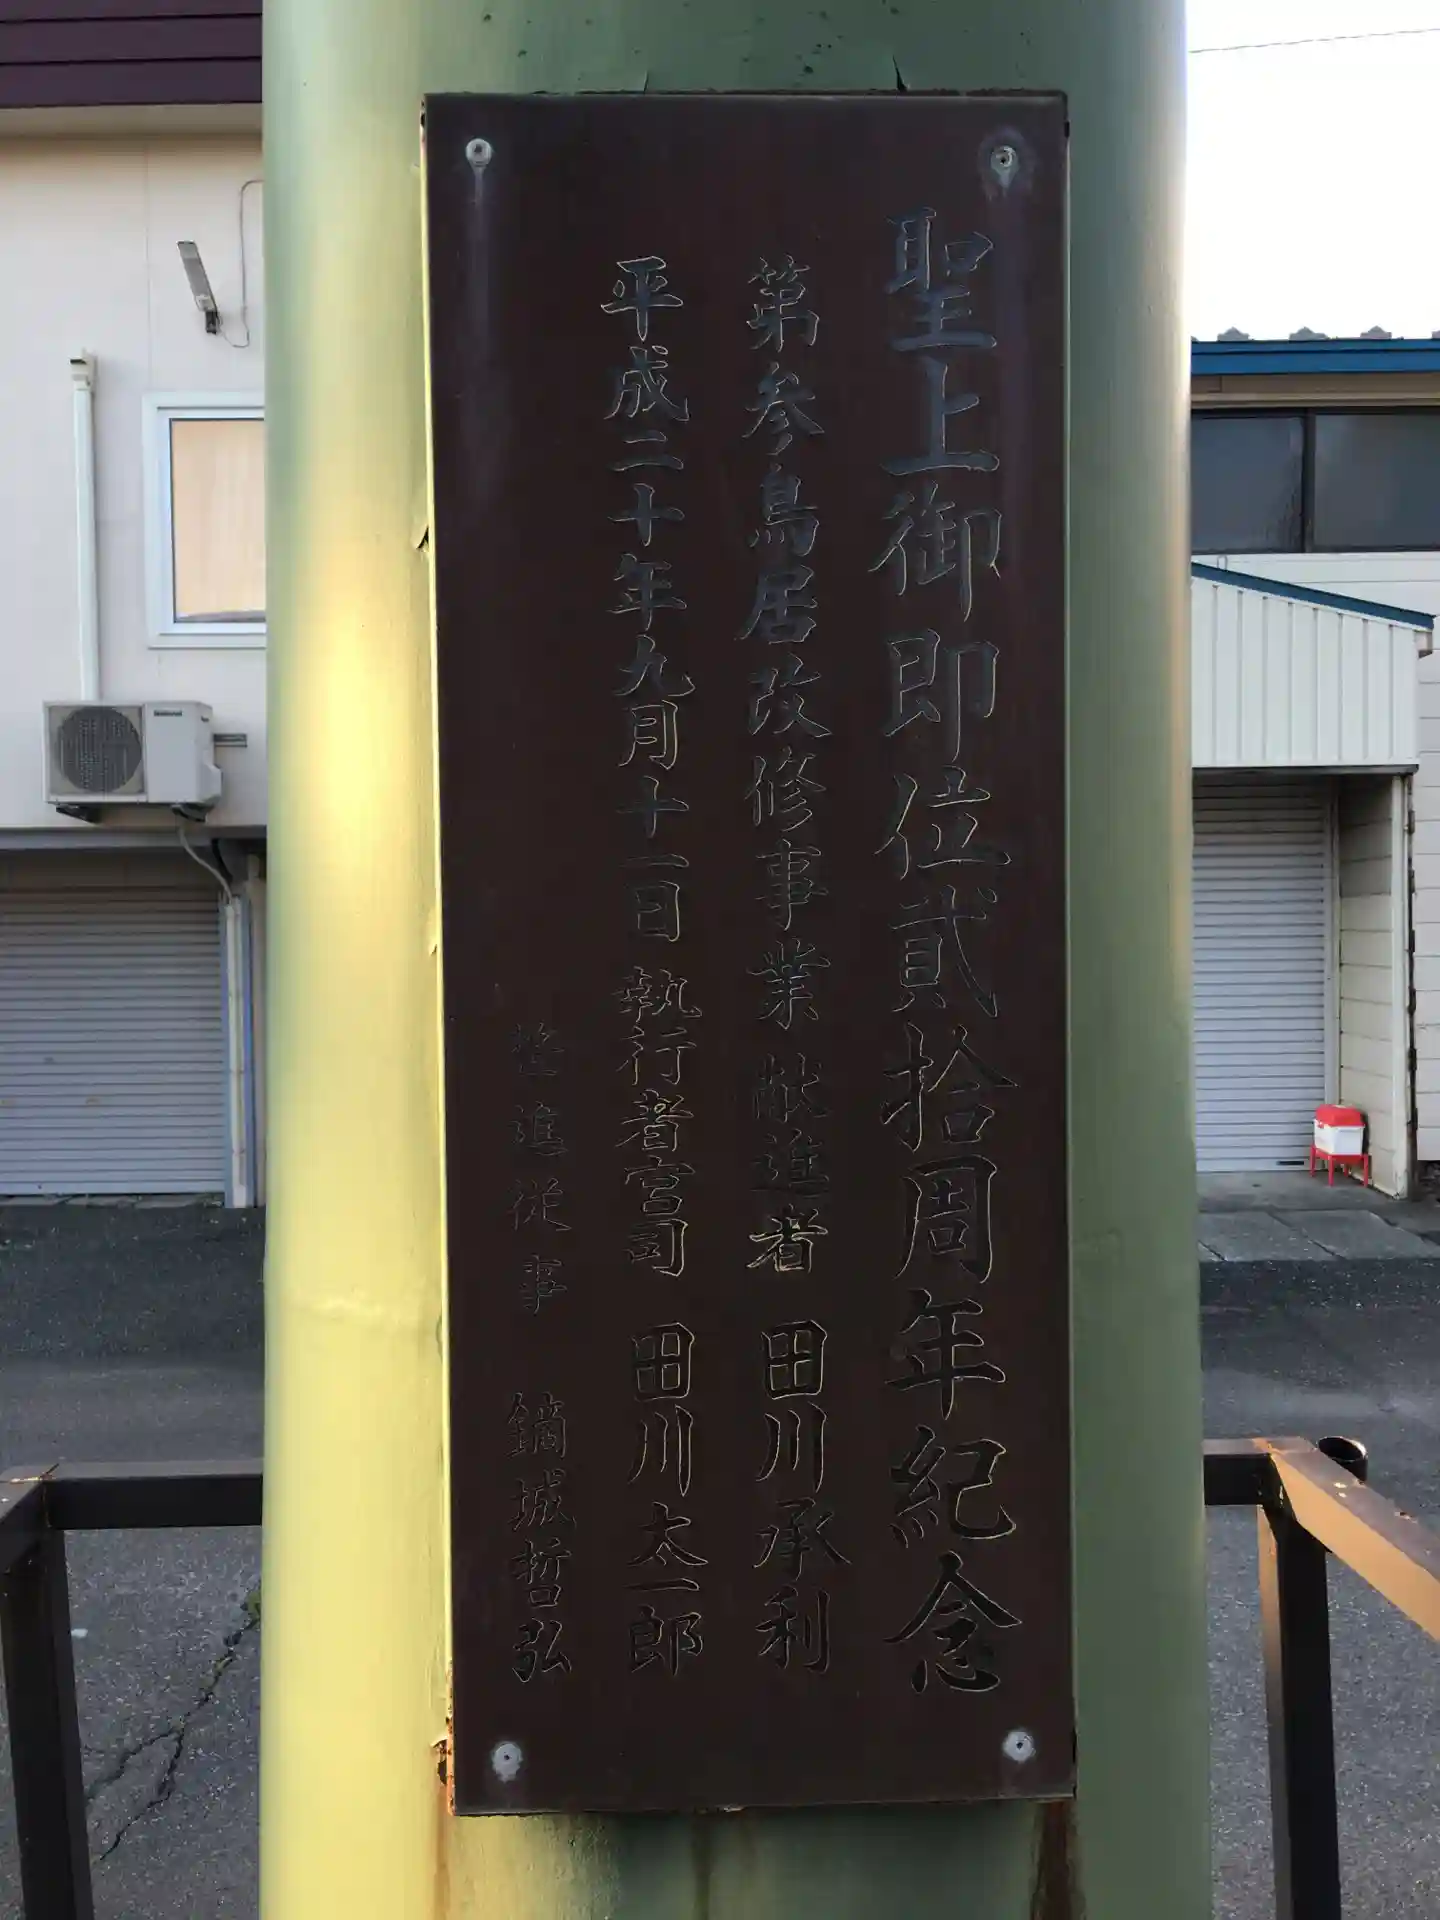 聖上御即位貳拾周年紀念
第参鳥居改修事業献進者 田川承利
平成二十年九月十一日 執行者宮司 田川太一郎
進従事 鏑城哲弘